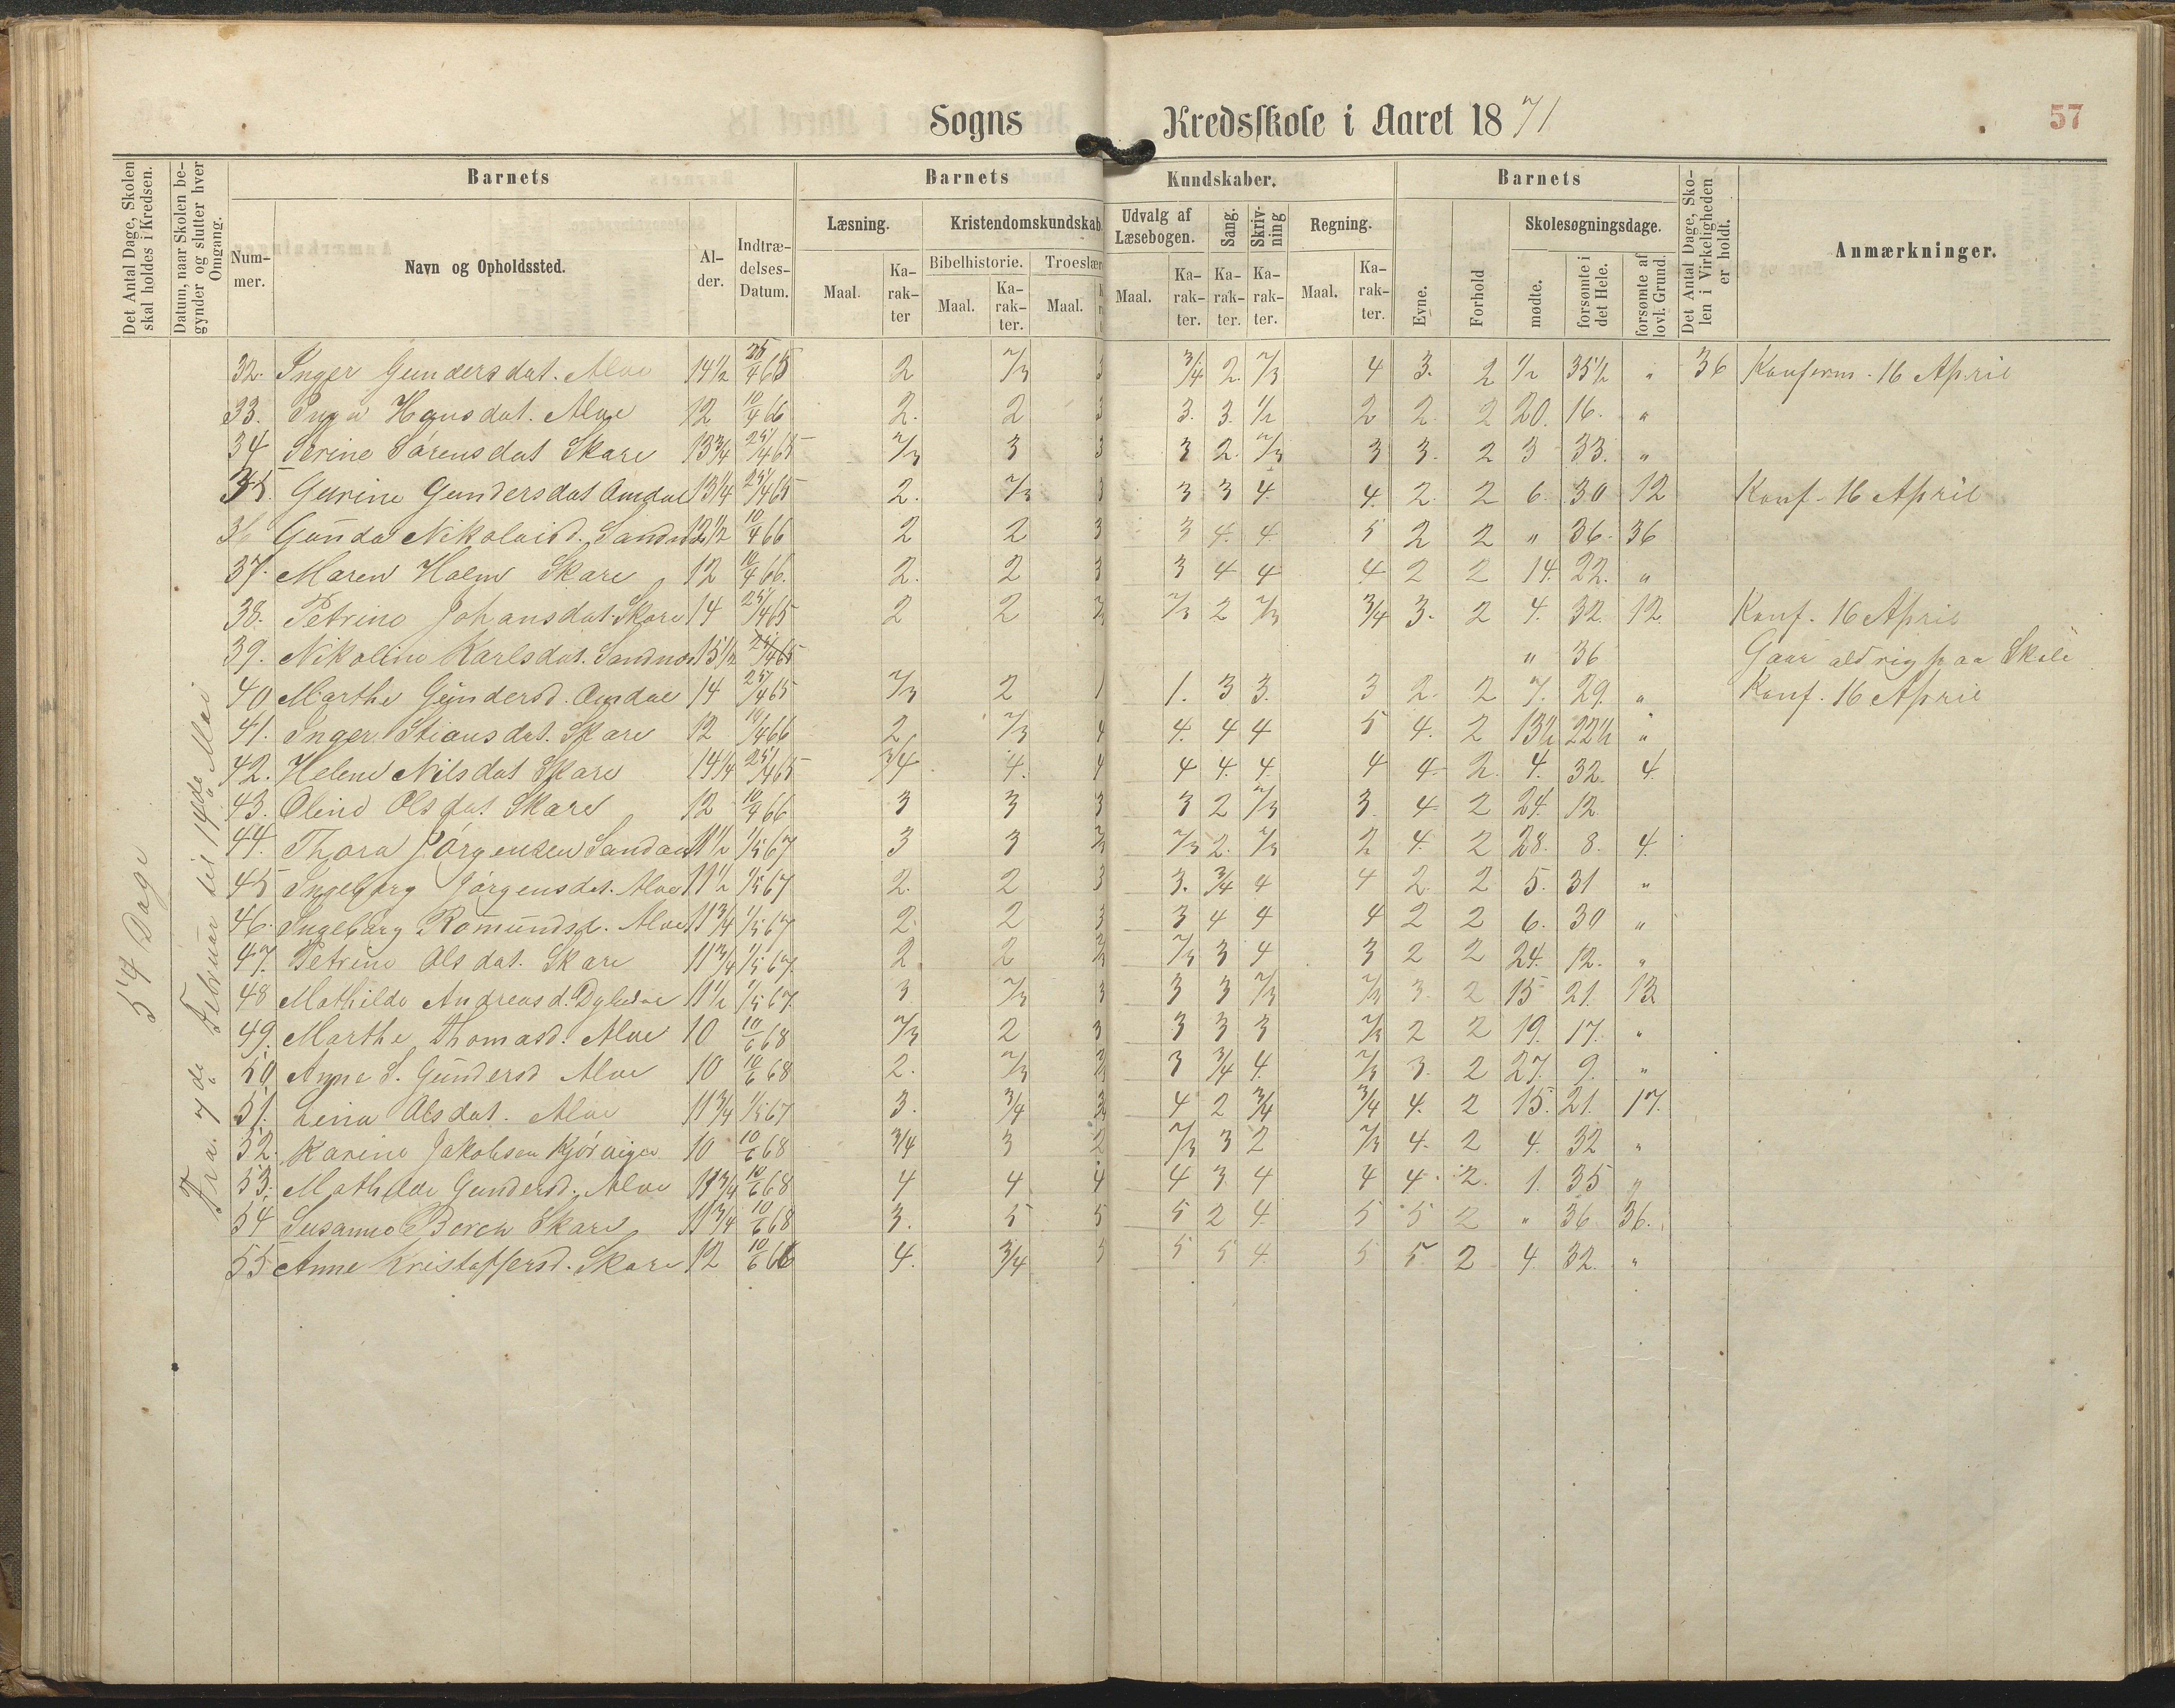 Sogns Kredsskole i Aaret 1871
57
Det Antal Dage, Skolen skal holdes i Kredsen.
Datum, naar Skolen begynder og slutter hver Omgang.
Barnets
Barnets
Kundskaber.
Barnets
Det Antal Dage, Skolen i Virkeligheden er holdt.
Anmærkninger.
Nummer.
Navn og Opholdssted.
Alder.
Indtrædelses-Datum.
Læsning.
Kristendomskundskab.
Udvalg af Læsebogen.
Sang.
Skrivning
Regning.
Evne.
Forhold
Skolesøgningsdage.
Maal.
Karakter
Bibelhistorie.
Troeslær
Maal.
Karakter.
Maal.
Maal.
Karakter.
Karakter.
Karakter.
Maal.
Karakter.
mødte.
forsømte i det Hele.
forsømte af lovl. Grund.
54 Dage
Fra 7de Februar til 14de Mai
32. Inger Gundersdat. Alve 14½ 25/4 65 2 2/3 3 3/4 2. 2/3 4 3. 2 ½ 35½ " 36 Konferm. 16 April
33. Inga Hansdat. Alve 12 10/4 66 2. 2 3 3. 3. ½ 2 2. 2 20. 16. "
34 Serine Sørensdat Skare 13¾ 25/4 65 2/3 3 3 3 2. 2/3 3 3. 2 3 33. "
35. Gurine Gundersdat Omdal 13¼ 25/4 65 2. 2/3 3 3 3 4. 4. 2. 2 6. 30 12 Konf. 16 April
36 Gunda Nikolaid. 12½ 10/4 66 2 2 3 3 4. 4. 5 2 2 " 36. 36
37. Maren Holm Skare 12 10/4 66. 2. 2 3 3 4 4 4 2 2 14. 22. "
38. Petrine Johansdat. Skare 14 25/4 65 2 2 2/3 2/3 2 2/3 3/4 3. 2 4. 32. 12. Konf. 16 April
39. Nikoline Karlsdat. Sandnes 15½ 25/4 65 " 36 Gaar aldrig paa Skole
40 Marthe Gundersd. Omdal 14 25/4 65 2/3 2 1 1. 3 3. 3 2. 2 7. 29. " Konf. 16 April
41. Inger Stiansdat. Skare 12 10/4 66 2 2/3 4 4. 4 4 5 4. 2 13½ 22½ "
42. Helene Nilsdat Skare 14¼ 25/4 65 3/4 4. 4 4 4. 4. 4 4. 2. 4. 32. 4.
43. Oline Olsdat. Skare 12 10/4 66 3 3 3 3 2 2/3 3. 4. 2 24. 12.
44. Thora Jørgensen 11½ 1/5 67 3 3 2/3 2/3 2. 2/3 2 4. 2 28. 8. 4.
45 Ingeborg Jørgensdt. Alve 11½ 1/5 67 2. 2 3 3. 3/4 4 4 2. 2 5. 31 "
46. Ingeborg Romundsd. Alve 11¾ 1/5 67 2. 2 3 3 4 4 4 2 2 6. 30 "
47. Petrine Olsdat. Skare 11¾ 1/5 67. 2. 2 2/3 2/3 3 4 3 2 2 24. 12. "
48 Mathilde Andreasd. 11½ 1/5 67. 3. 2/3 3 3 3 2/3 2/3 3. 2 15 21. 13
49. Marthe Thomasd. Alve 10 10/6 68 2/3 2 3 3 3 3 2/3 2 2 19. 17. "
50 Anne S. Gundersd Alve 10 10/6 68 2. 2/3 2/3 3 3/4 4. 2/3 3. 2 27. 9. "
51. Lina Olsdat. Alve 11¾ 1/5 67 3. 3/4 3/4 4 2 3/4 3/4 4. 2 15. 21. 17.
52. Karine Jakobsen 10 10/6 68 3/4 3 2 2/3 3 2 2/3 4. 2 4. 32 "
53. Mathilde Gundersd. Alve 11¾ 10/6 68 4 4 4 4 3. 4 4 4. 2. 1. 35 "
54 Susanne Berch Skare 11¾ 10/6 68 3. 5 5 5 2 4. 5 5 2 " 36 36.
55 Anne Kristoffersd. Skare 12 10/6 66 4. 3/4 5 5 5 4. 5 5. 2 4. 32. "